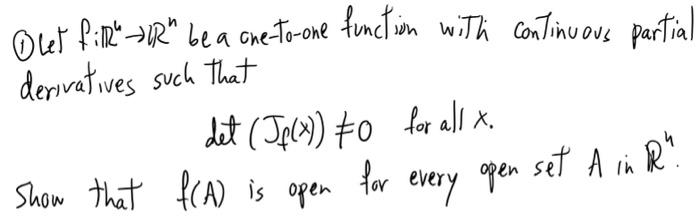 ① Let f: ℝⁿ → ℝⁿ be a one-to-one function with continuous partial
derivatives such that
det (J_f(x)) ≠ 0 for all x.
Show that f(A) is open for every open set A in ℝⁿ.